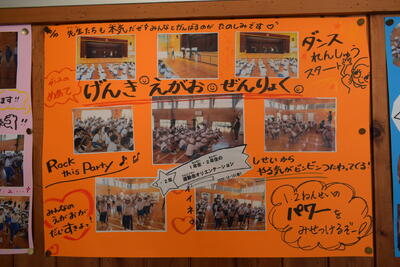 先生たちも本気だぜ みんなとがんばるのが たのしみです♡
ダンス
れんしゅう
スタート
1・2の
めあて
げんき えがお ぜんりょく
Rock
this Party
1年部・2年部の
運動会オリエンテーション
しせいから
やる気がビンビンつたわってくる!
みんなの
えがおが
だいすきよ!
1・2ねんせいの
パワーを
みせつけるぞー!